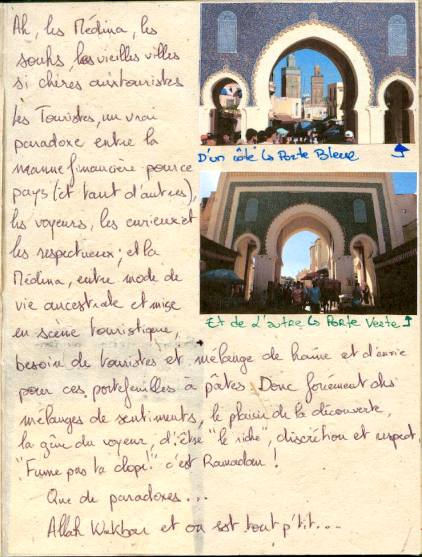 Ah, les Médina, les
souks, les vieilles villes
si chères aux touristes
Les Touristes, un vrai
paradoxe entre la
manne financière pour ce
pays (et tant d'autres),
les voyeurs, les curieux et
les respectueux; et la
Médina, entre mode de
vie ancestrale et mise
en scène touristique,
besoin de touristes et mélange de haine et d'envie
pour ces portefeuilles à pâtes. Donc forcément des
mélanges de sentiments, le plaisir de la découverte,
la gêne du voyeur, d'être "le riche", discrétion et respect.
"Fume pas ta clope!" c'est Ramadan!
Que de paradoxes...
Allah Wakbar et on est tout p'tit...
D'un côté la Porte Bleue
Et de l'autre la Porte Verte